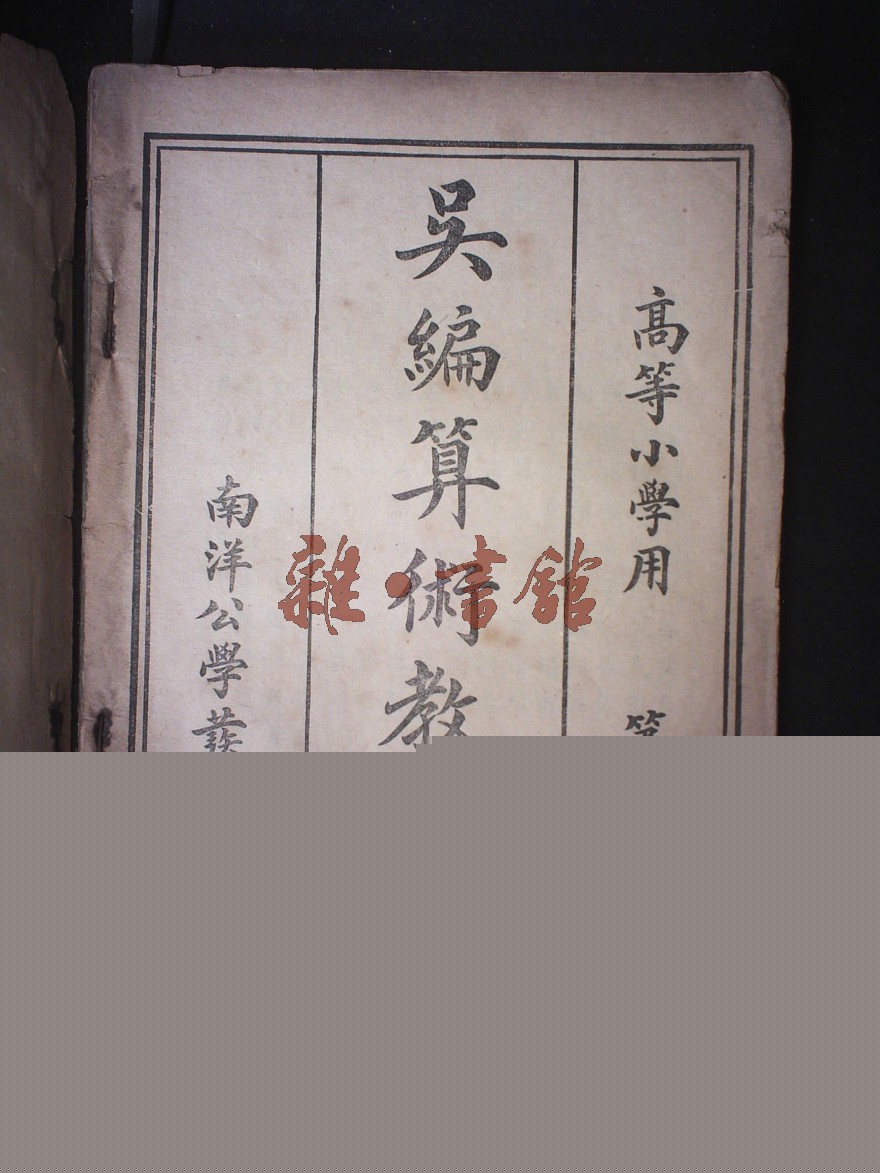 高等小學用 第
吳編算術教
南洋公學叢
雜·書館